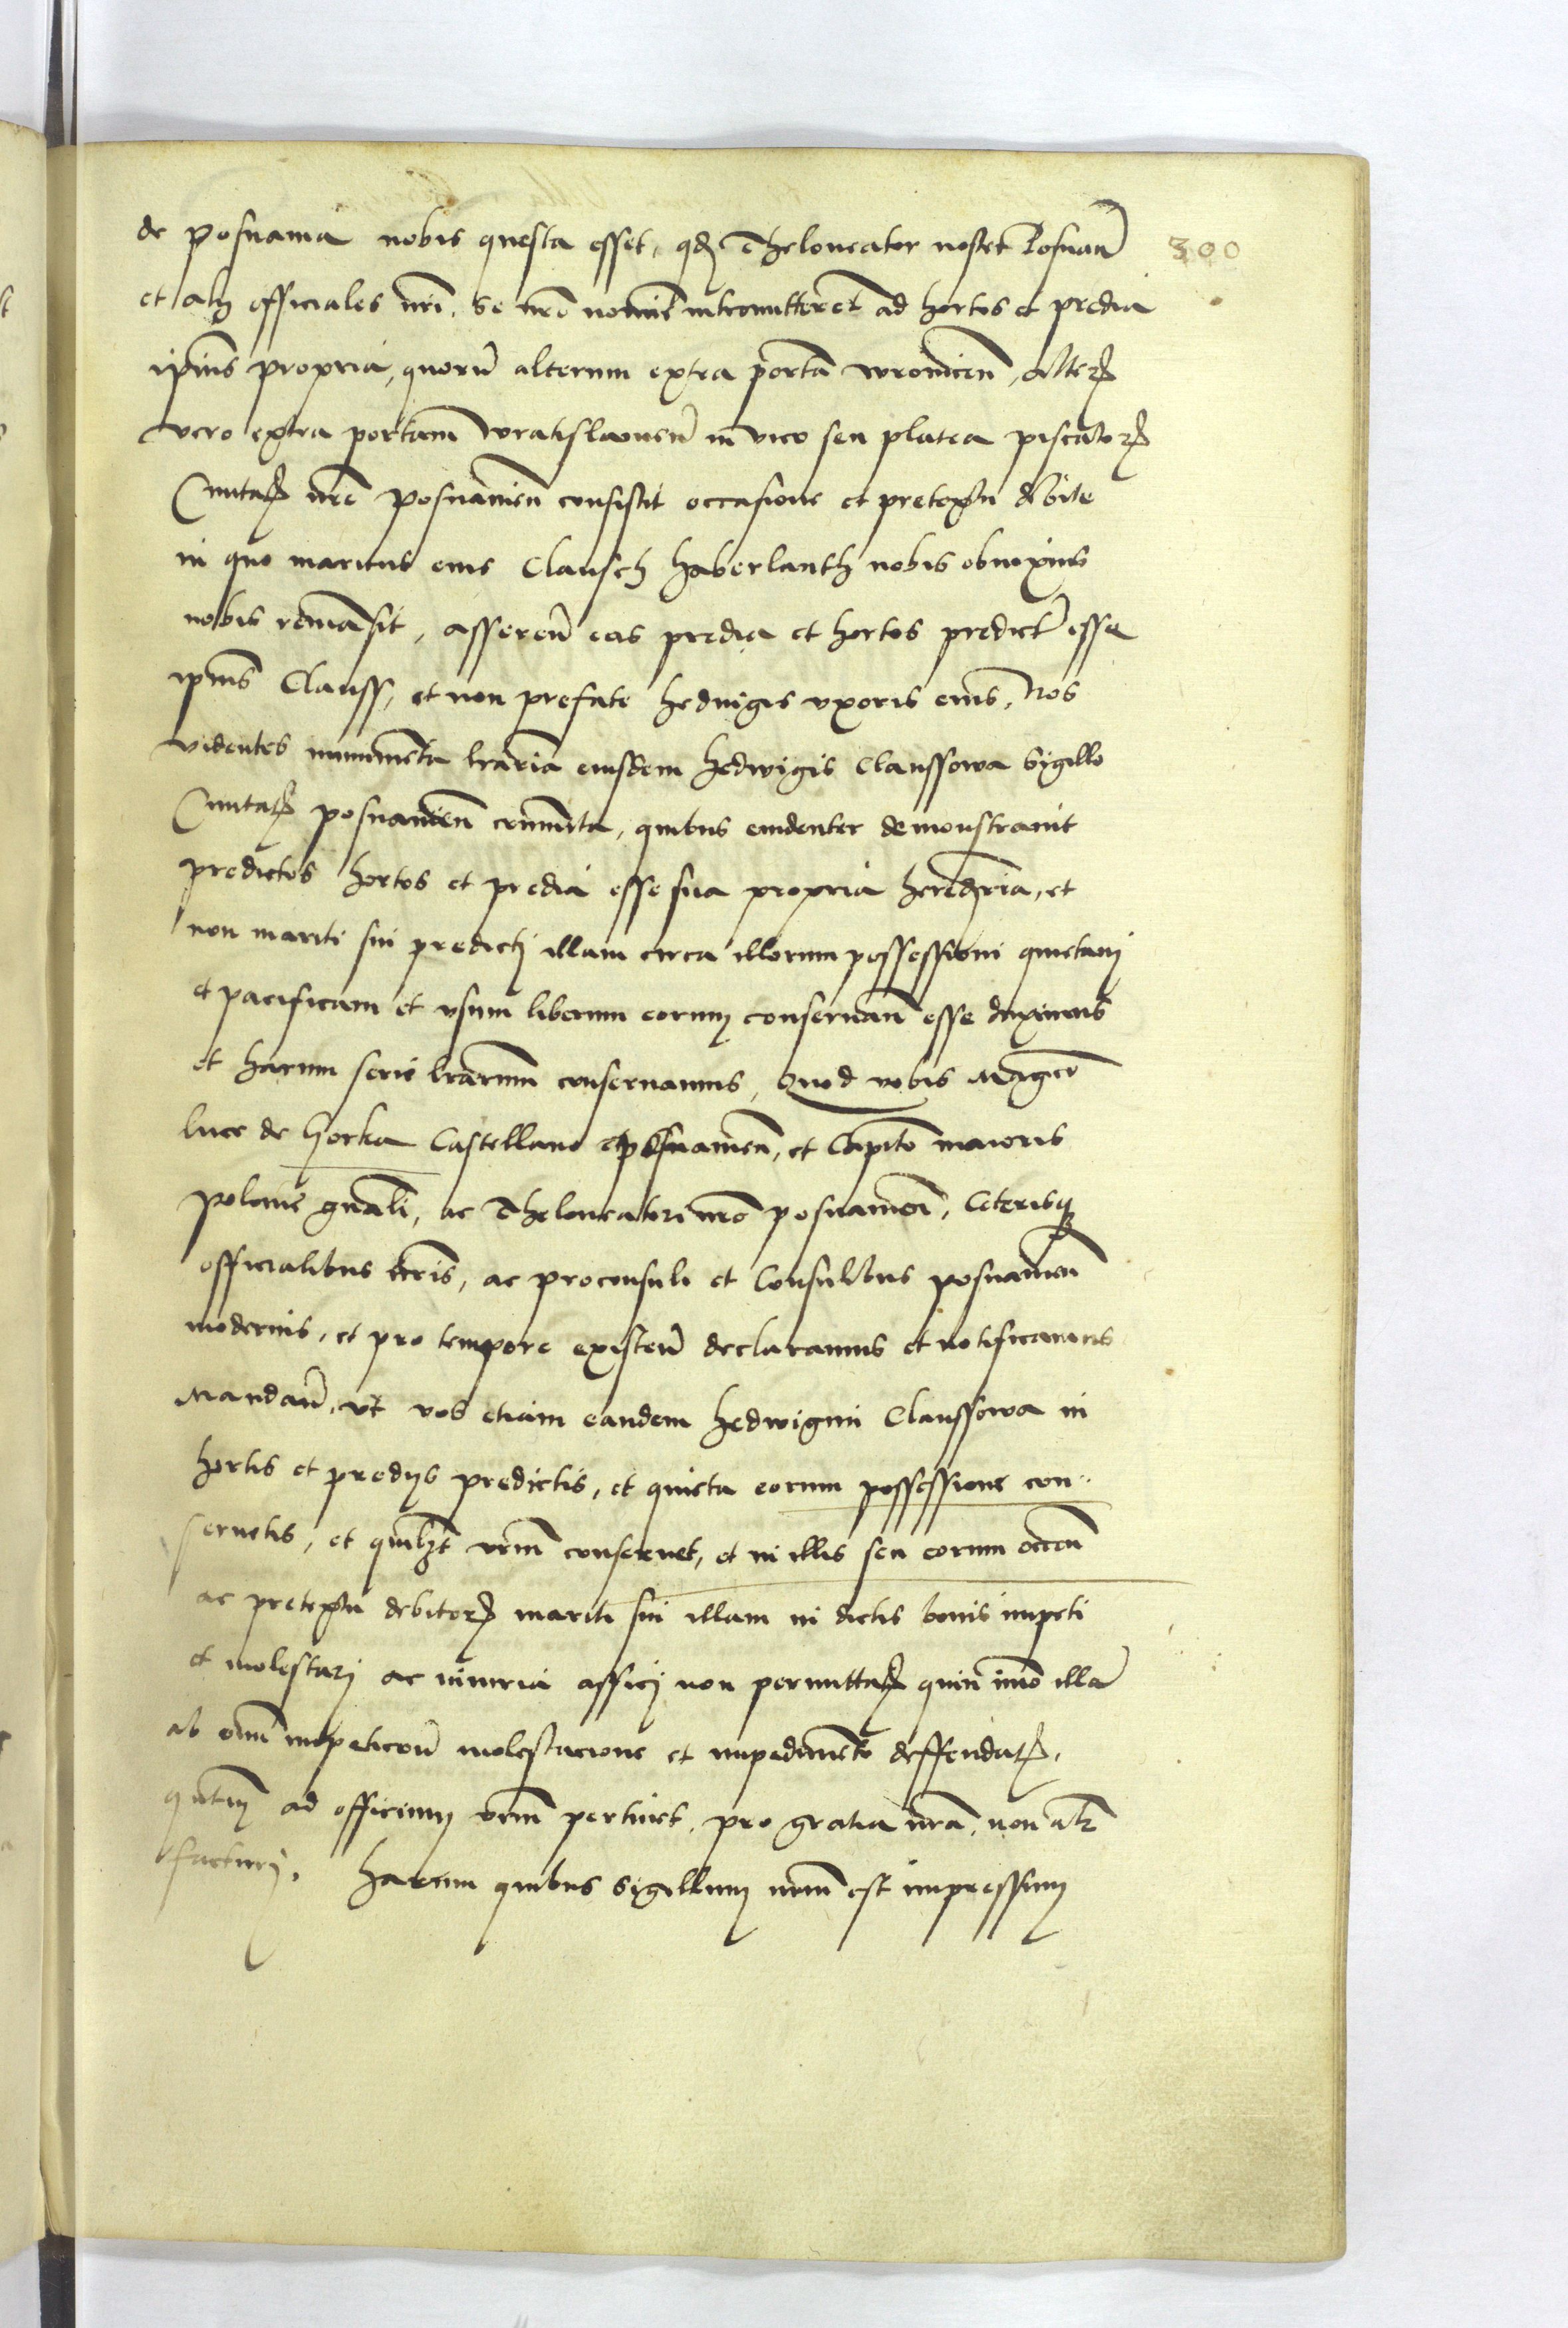 de posnania nobis questa esset, qd Theloneator noster Posnan
300
et alij officiales nri, se nro nomine intromitteret ad hortos et predia
ipius propria, quorum alterum extra porta wronicen, alter
vero extra portam wratislavien in vico seu platea piscator
Civitat nre posnanien consistit occasione et pretextu debite
in quo maritus eius Clausch haberlanth nobis obnoxius
nobis remasit, asseren eas predia et hortos predict esse
ipius Clauss, et non prefate hedvigis vxoris eius, Nos
videntes munimeta lraria eiusdem hedwigis Claussowa sigillo
Civitat posnanien comunita, quibus evidenter demonstravit
predictos hortos et predia esse sua propria heredria, et
non mariti sui predicti illam circa illorum possessioni quietam
et pacificam et vsum liberum eorum conservan esse duximus
et harum serie lrarum conservamus, Quod vobis Magco
luce de horka Castellano posnanien, et Capito maioris
polonie gnali, ac Theloneatori nro posnanien, Ceterisq
officialibus nris, ac proconsuli et Consulibus posnanien
modernis, et pro tempore existen declaramus et notificamus
Mandan, vt vos etiam eandem hedwigim Claussowa in
hortis et predijs predictis, et quieta eorum possessione con
servetis, et quilibet vrm conservet, et in illis seu eorum occon
ac pretextu debitor mariti sui illam in dictis bonis impeti
et molestari ac iniuria affici non permittat quin imo illa
ab omi impeticon molestacione et impedimento deffendat,
qntum ad officium vrm pertinet, pro gratia nra, non alr
facturi. harum quibus sigillum nrm est impressum